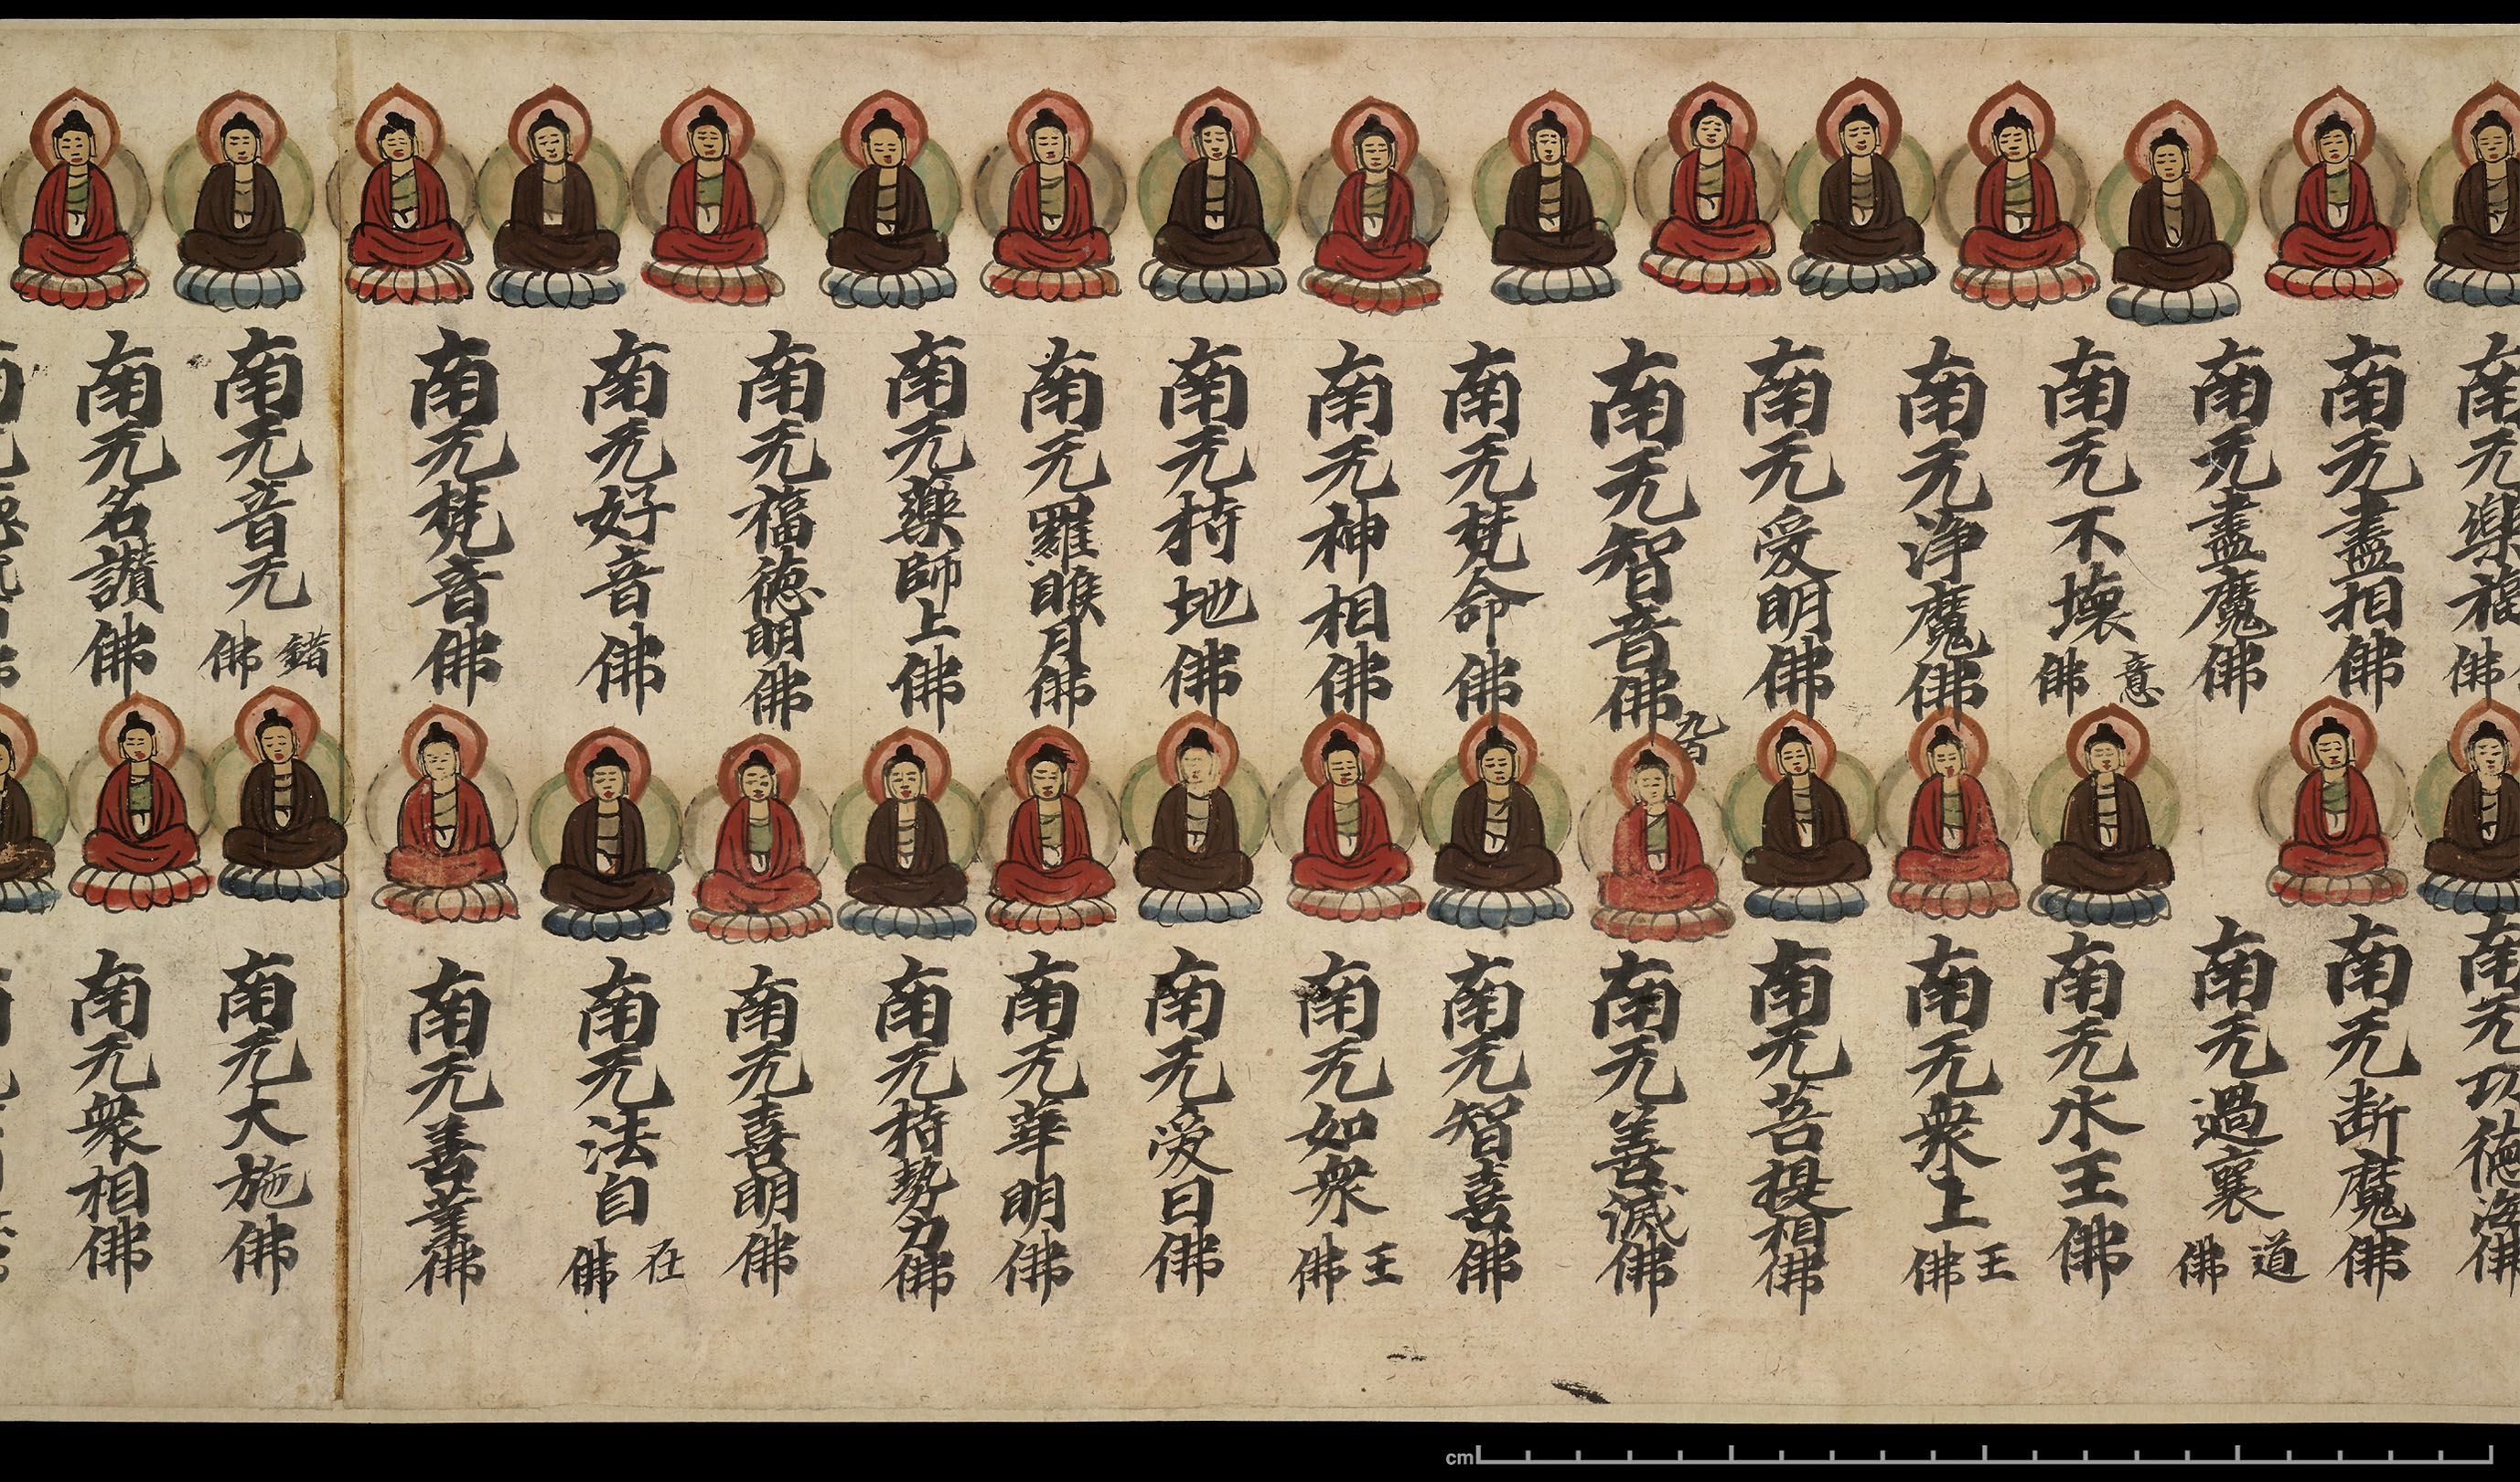 南无樂福佛
南无功德海佛
南无盡相佛
南无断魔佛
南无盡魔佛
南无過襄道佛
南无不壞意佛
南无水王佛
南无淨魔佛
南无衆上王佛
南无受明佛
南无菩提相佛
南无智音佛
九百
南无善滅佛
南无梵命佛
南无智喜佛
南无神相佛
南无如衆王佛
南无持地佛
南无爱日佛
南无羅睺月佛
南无華明佛
南无藥師上佛
南无持勢力佛
南无福德明佛
南无喜明佛
南无好音佛
南无法自在佛
南无梵音佛
南无善業佛
南无音无錯佛
南无大施佛
南无名讃佛
南无衆相佛
cm